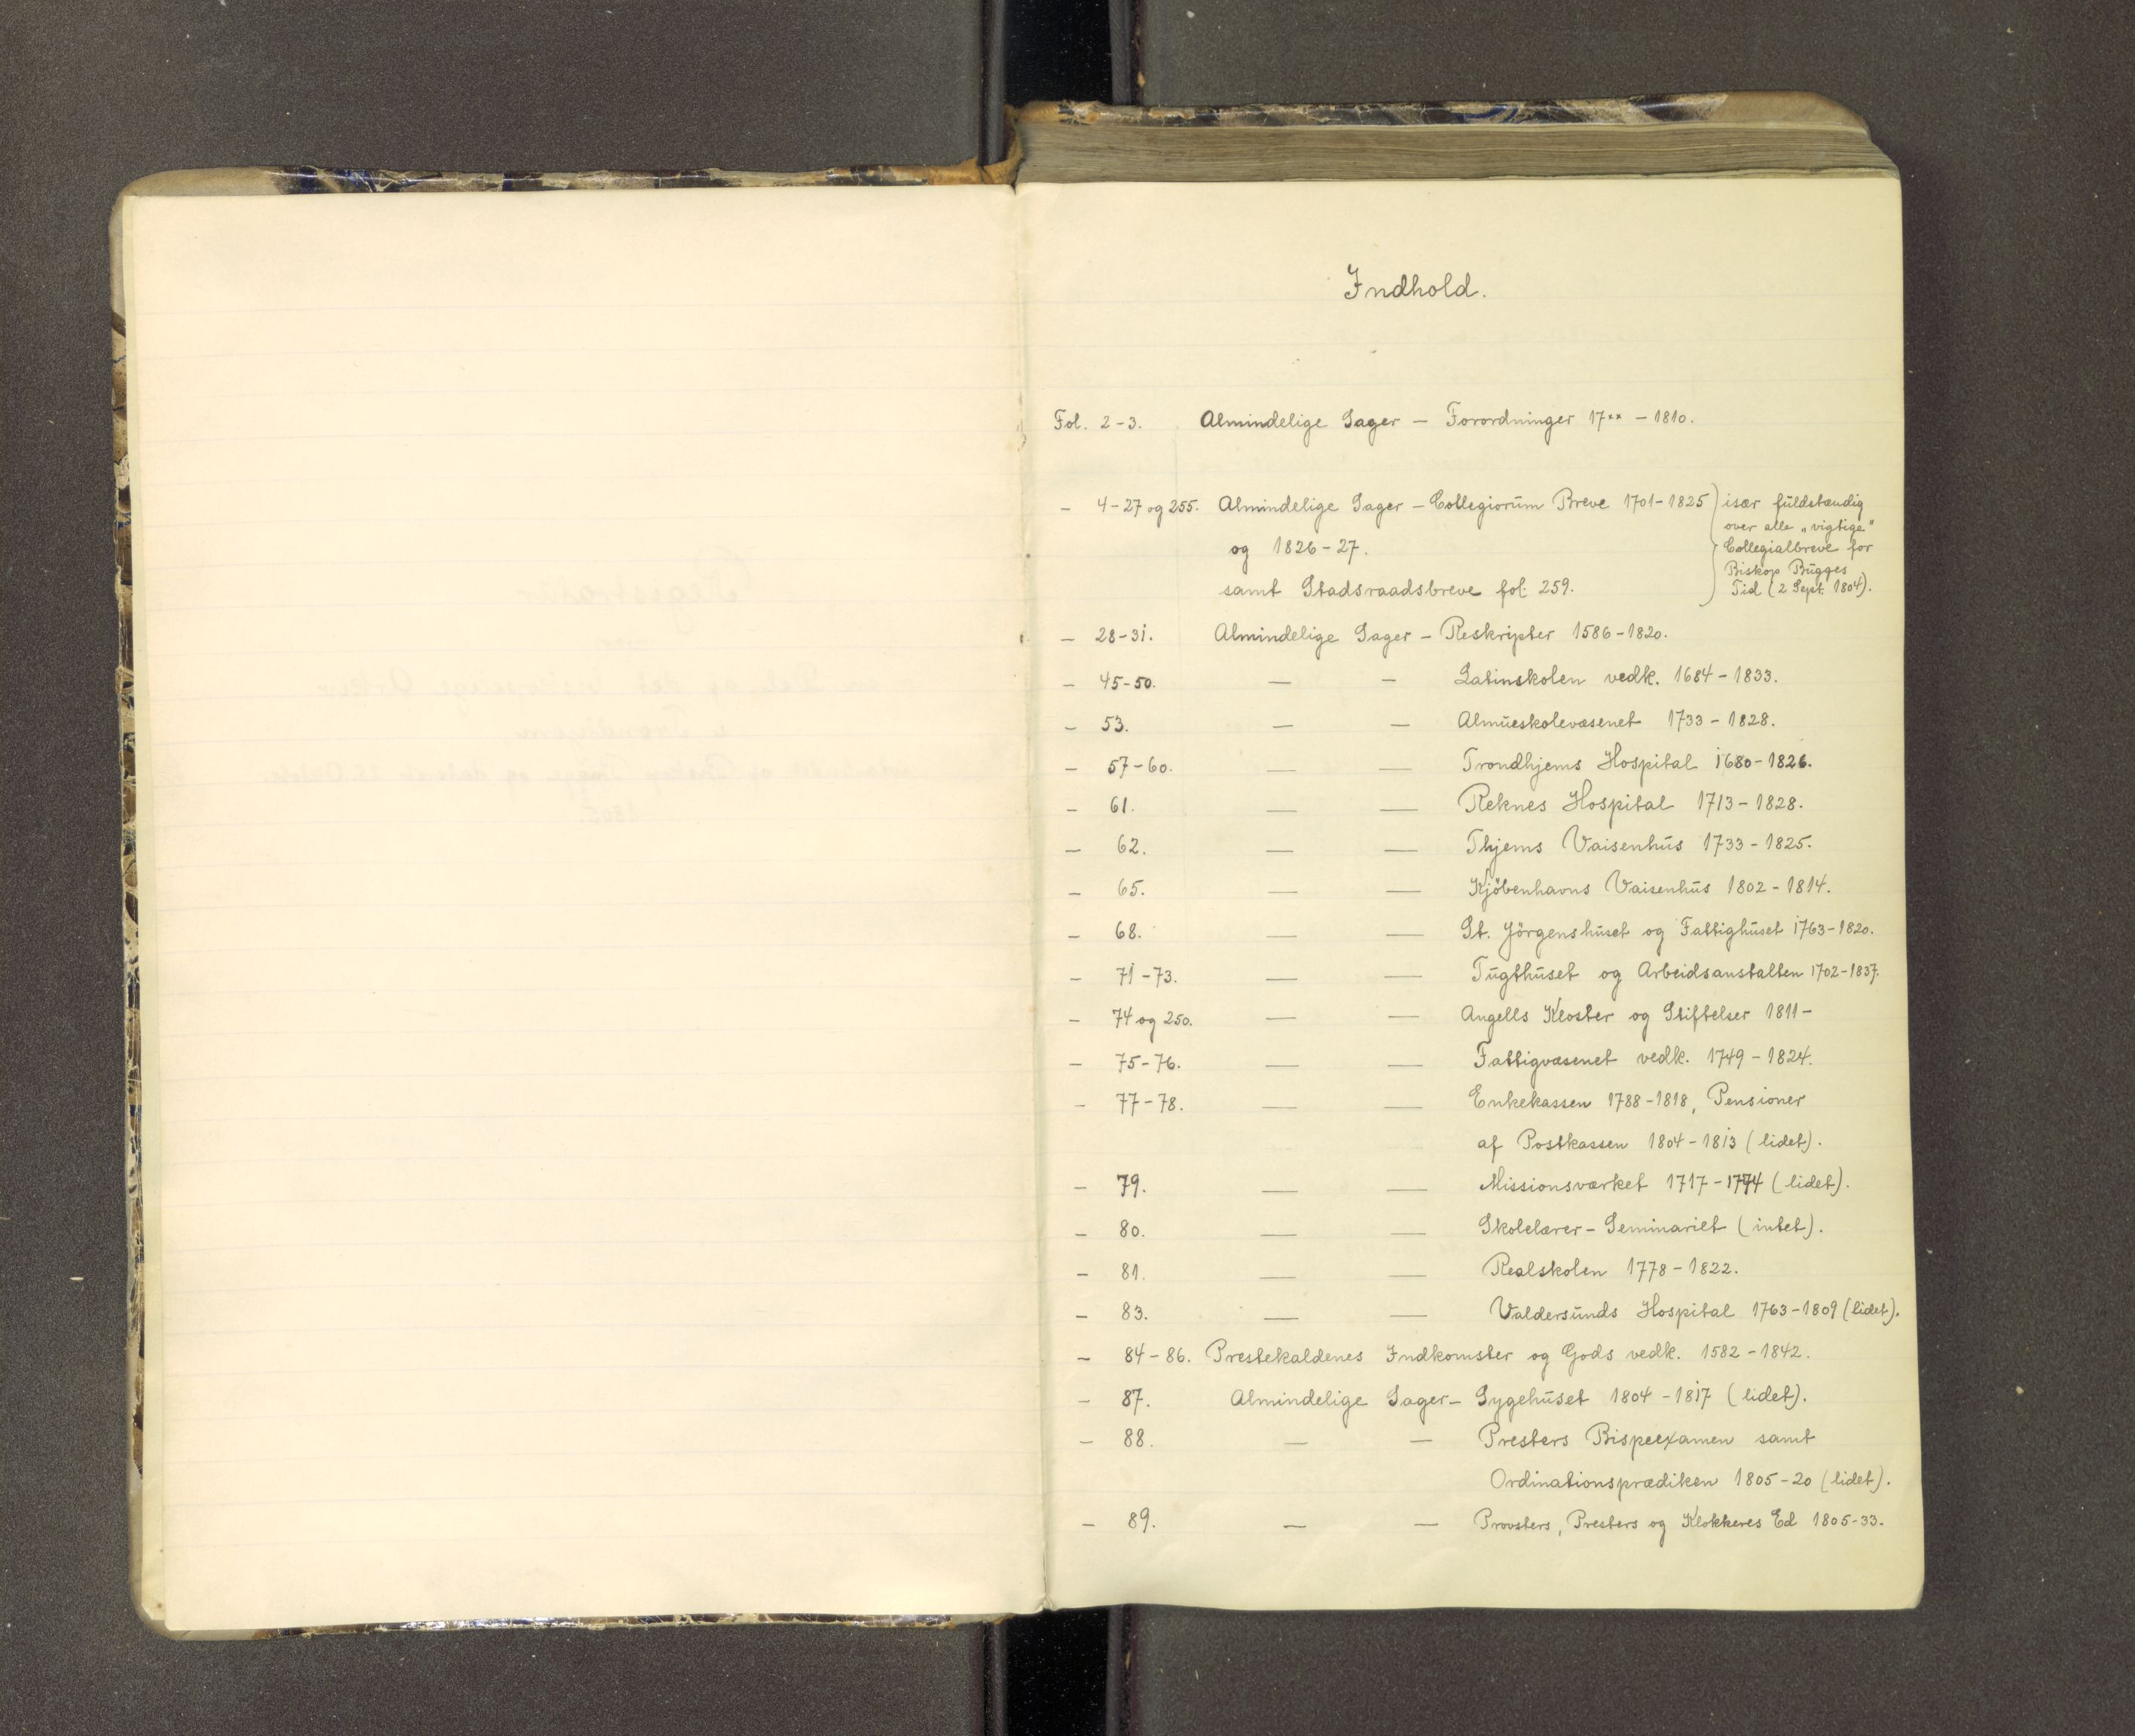 Indhold.
Fol. 2-3. Almindelige Sager - Forordninger 17** - 1810.
- 4-27 og 255. Almindelige Sager - Collegiorum Breve 1701-1825
og 1826-27.
samt Stadsraadsbreve fol. 259.
især fuldstændig
over alle „vigtige"
Collegialbreve for
Biskop Bugges
Tid (2 Sept. 1804).
- 28-31. Almindelige Sager - Reskripter 1586-1820.
- 45-50. — — Latinskolen vedk. 1684-1833.
- 53. — — Almueskolevæsenet 1733-1828.
- 57-60. — — Trondhjems Hospital 1680-1826.
- 61. — — Reknes Hospital 1713-1828.
- 62. — — Thjems Vaisenhus 1733-1825.
- 65. — — Kjöbenhavns Vaisenhus 1802-1814.
- 68. — — St. Jörgenshuset og Fattighuset 1763-1820.
- 71-73. — — Tugthuset og Arbeidsanstalten 1702-1837.
- 74 og 250. — — Angells Kloster og Stiftelser 1811-
- 75-76. — — Fattigvæsenet vedk. 1749-1824.
- 77-78. — — Enkekassen 1788-1818, Pensioner
af Postkassen 1804-1813 (lidet).
- 79. — — Missionsværket 1717-1774 (lidet).
- 80. — — Skolelærer-Seminariet (intet).
- 81. — — Realskolen 1778-1822.
- 83. — — Valdersunds Hospital 1763-1809 (lidet).
- 84-86. Prestekaldenes Indkomster og Gods vedk. 1582-1842.
- 87. Almindelige Sager- Sygehuset 1804-1817 (lidet).
- 88. — — Presters Bispeexamen samt
Ordinationsprædiken 1805-20 (lidet).
- 89. — — Provsters, Presters og Klokkeres Ed 1805-33.